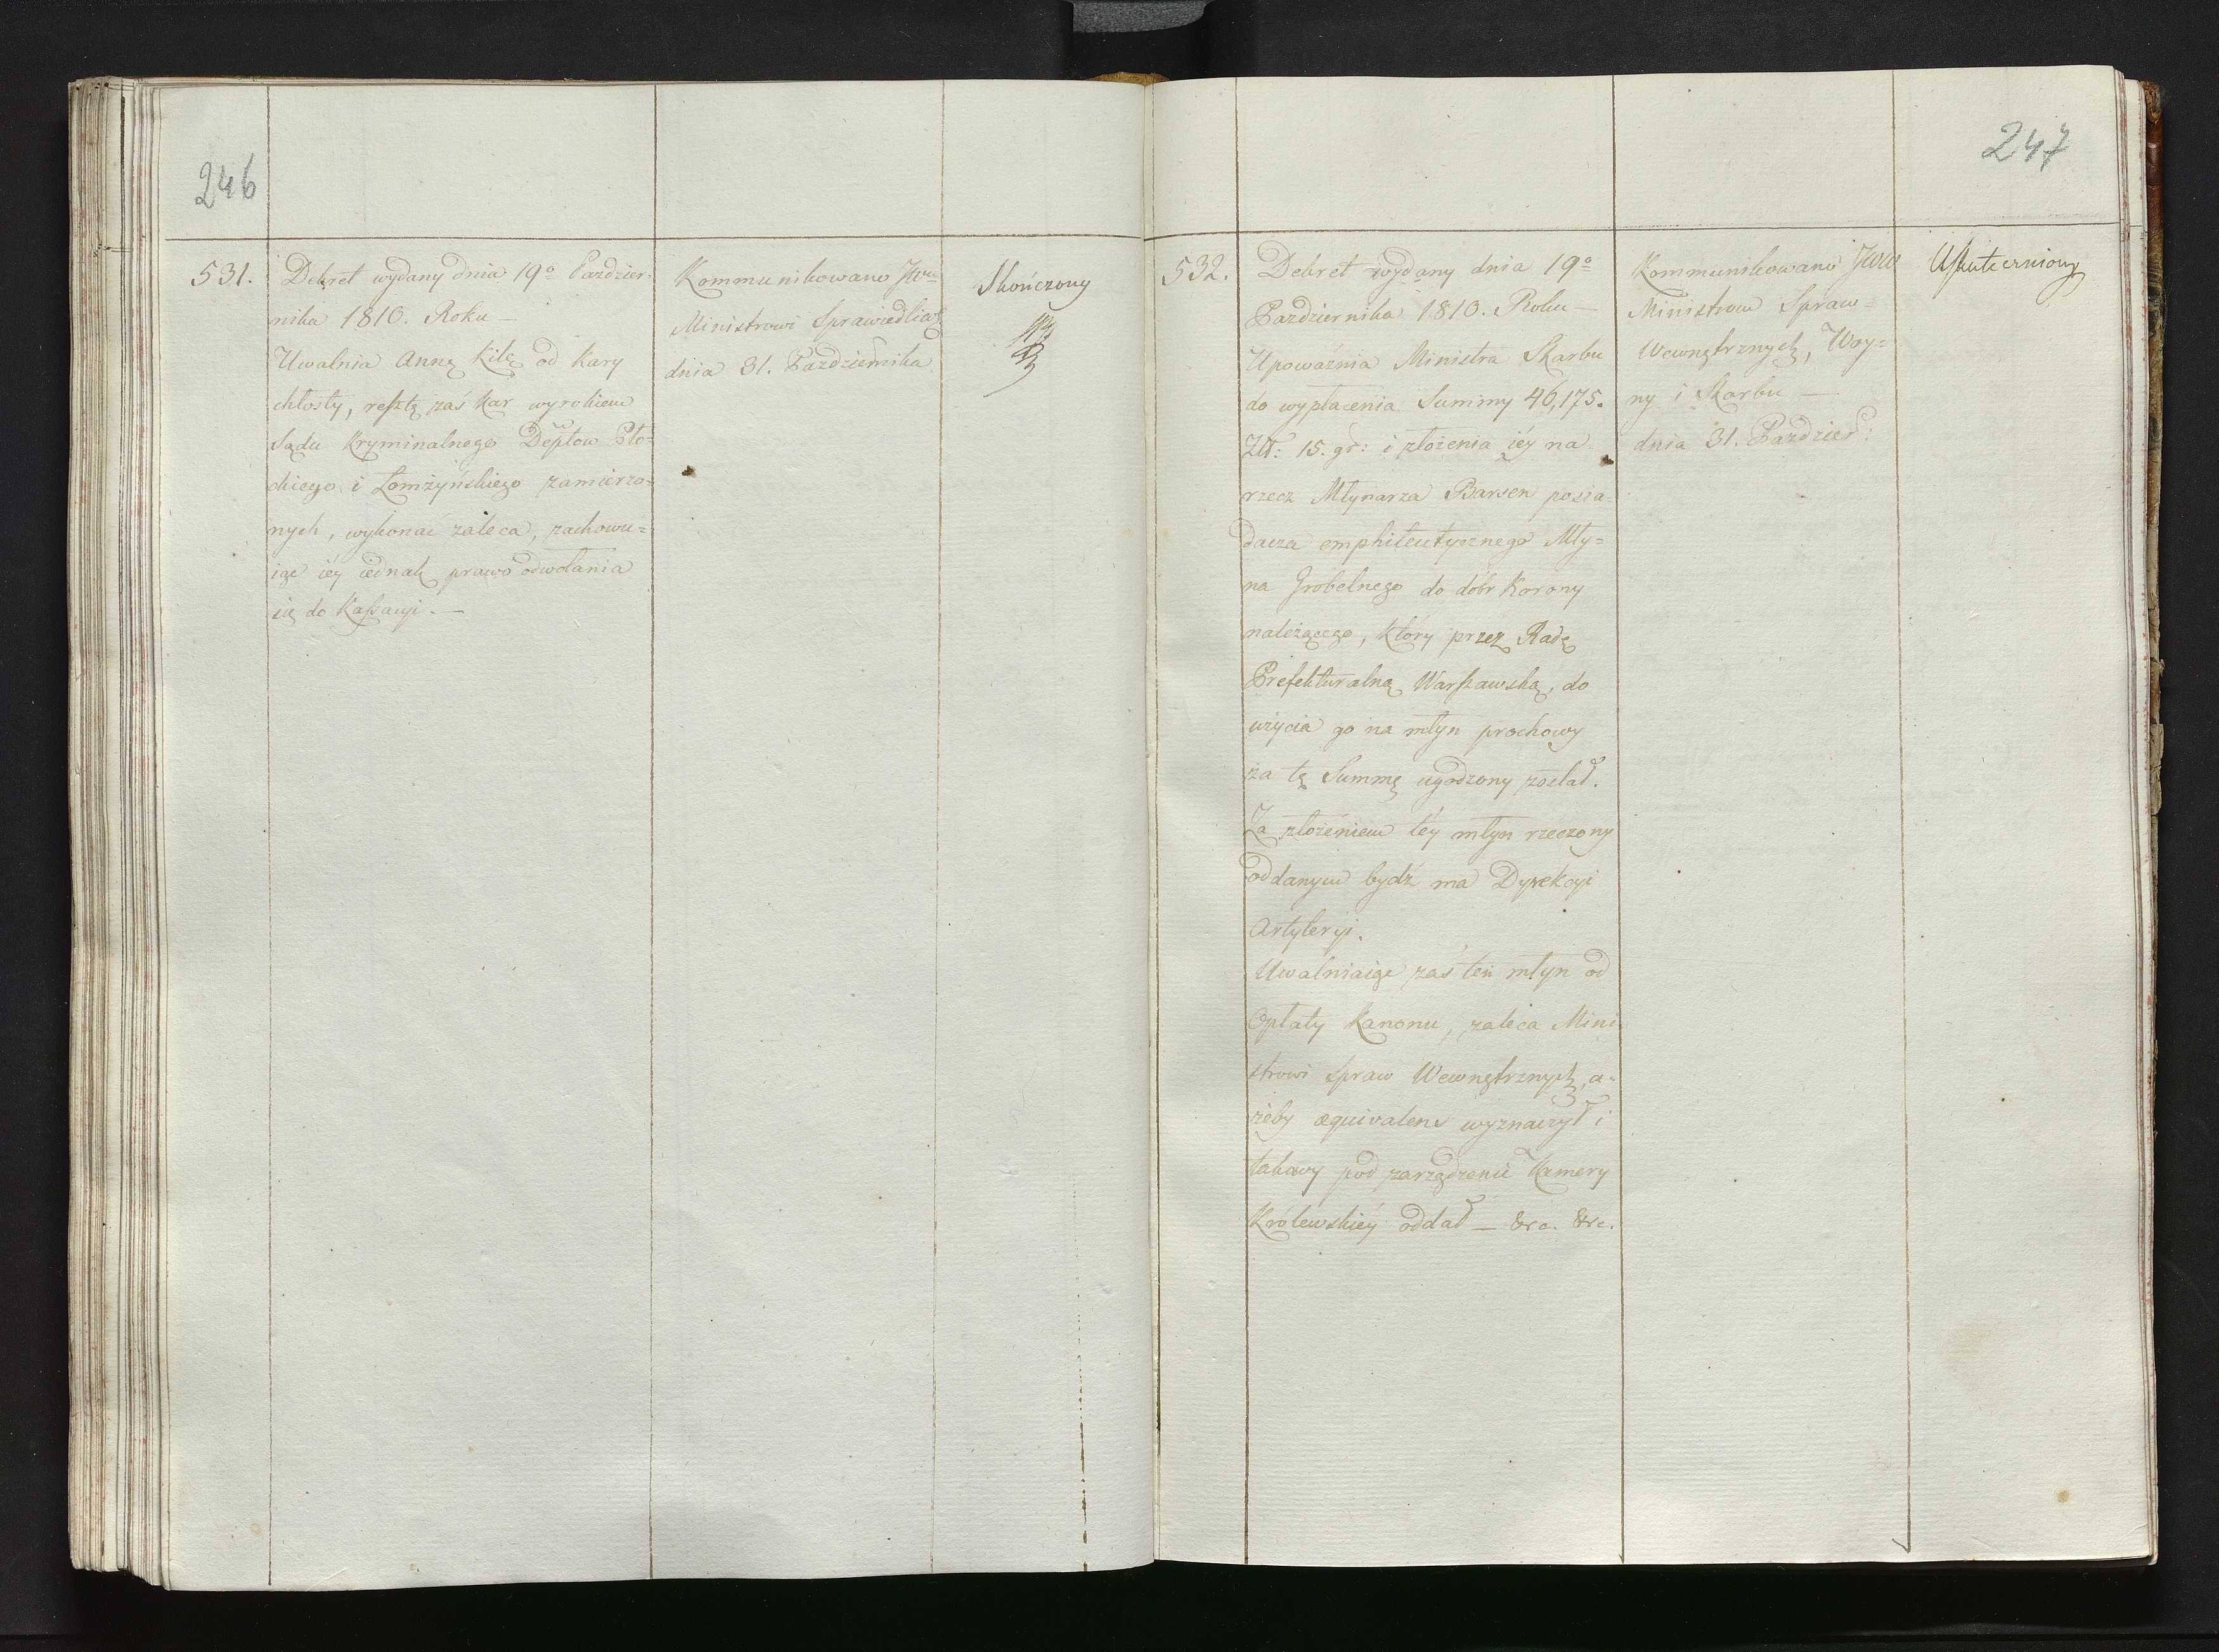 246
531.
Dekret wydany dnia 19º Pazdzier-
nika 1810. Roku —
Uwalnia Annę Kilę od Kary
chłosty, resztę zaś kar wyrokiem
Sądu Kryminalnego Deptow Pło-
ckiego i Łomżyńskiego zamierzo-
nych, wykonać zaleca, zachowu=
iąc iéy iednak prawo odwołania
się do Kassacyi. —
Kommunikowano Jwu
Ministrowi Sprawiedliw
dnia 31. Pazdziernika
Skończony
247
532.
Dekret wydany dnia 19º
Pazdziernika 1810. Roku —
Upoważnia Ministra Skarbu
do wypłacenia Summy 46,175.
Złt: 15. gr: i złożenia iéy na
rzecz Młynarza Barsen posia-
dacza emphiteutycznego Mły=
na Grobelnego do dóbr Korony
należącego, ktory przez Radę
Prefekturalną Warszawską, do
użycia go na młyn prochowy
za tę Summę ugodzony został.
Za złożeniem téy młyn rzeczony
oddanym bydź ma Dyrekcyi
Artyleryi.
Uwalniaiąc zaś ten młyn od
Opłaty Kanonu, zaleca Mini-
strowi Spraw Wewnętrznych, a-
żeby æquivalens wyznaczył i
takowy pod zarządzenie Kamery
Królewskiéy oddał — &c. &c.
Kommunikowano JWW
Ministrom Spraw-
Wewnętrznych, Woy=
ny i Skarbu —
dnia 31. Pazdzier:
Uskuteczniony